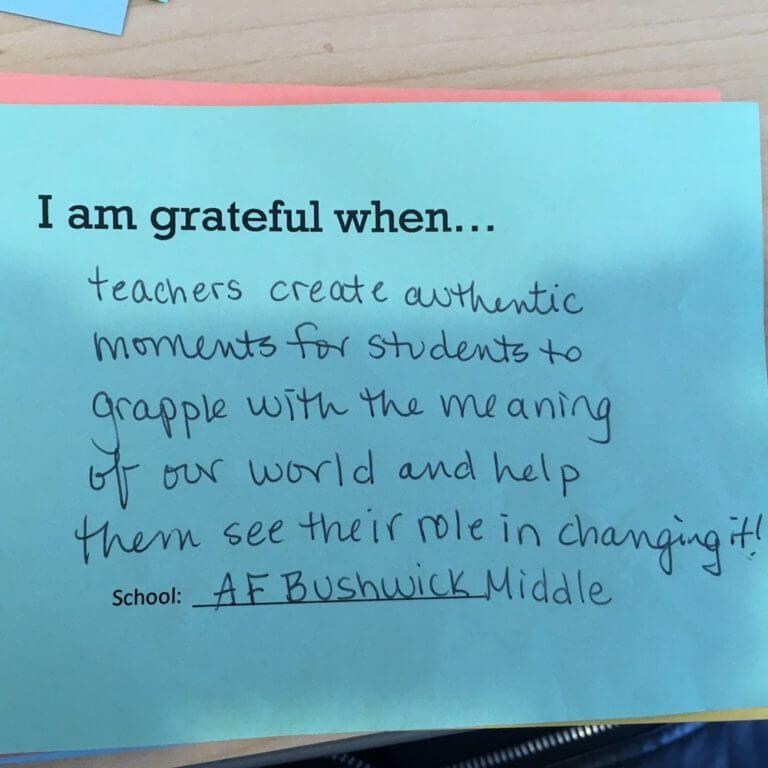 I am grateful when...
teachers create authentic
moments for students to
grapple with the meaning
of our world and help
them see their role in changing it!
School: AF Bushwick Middle